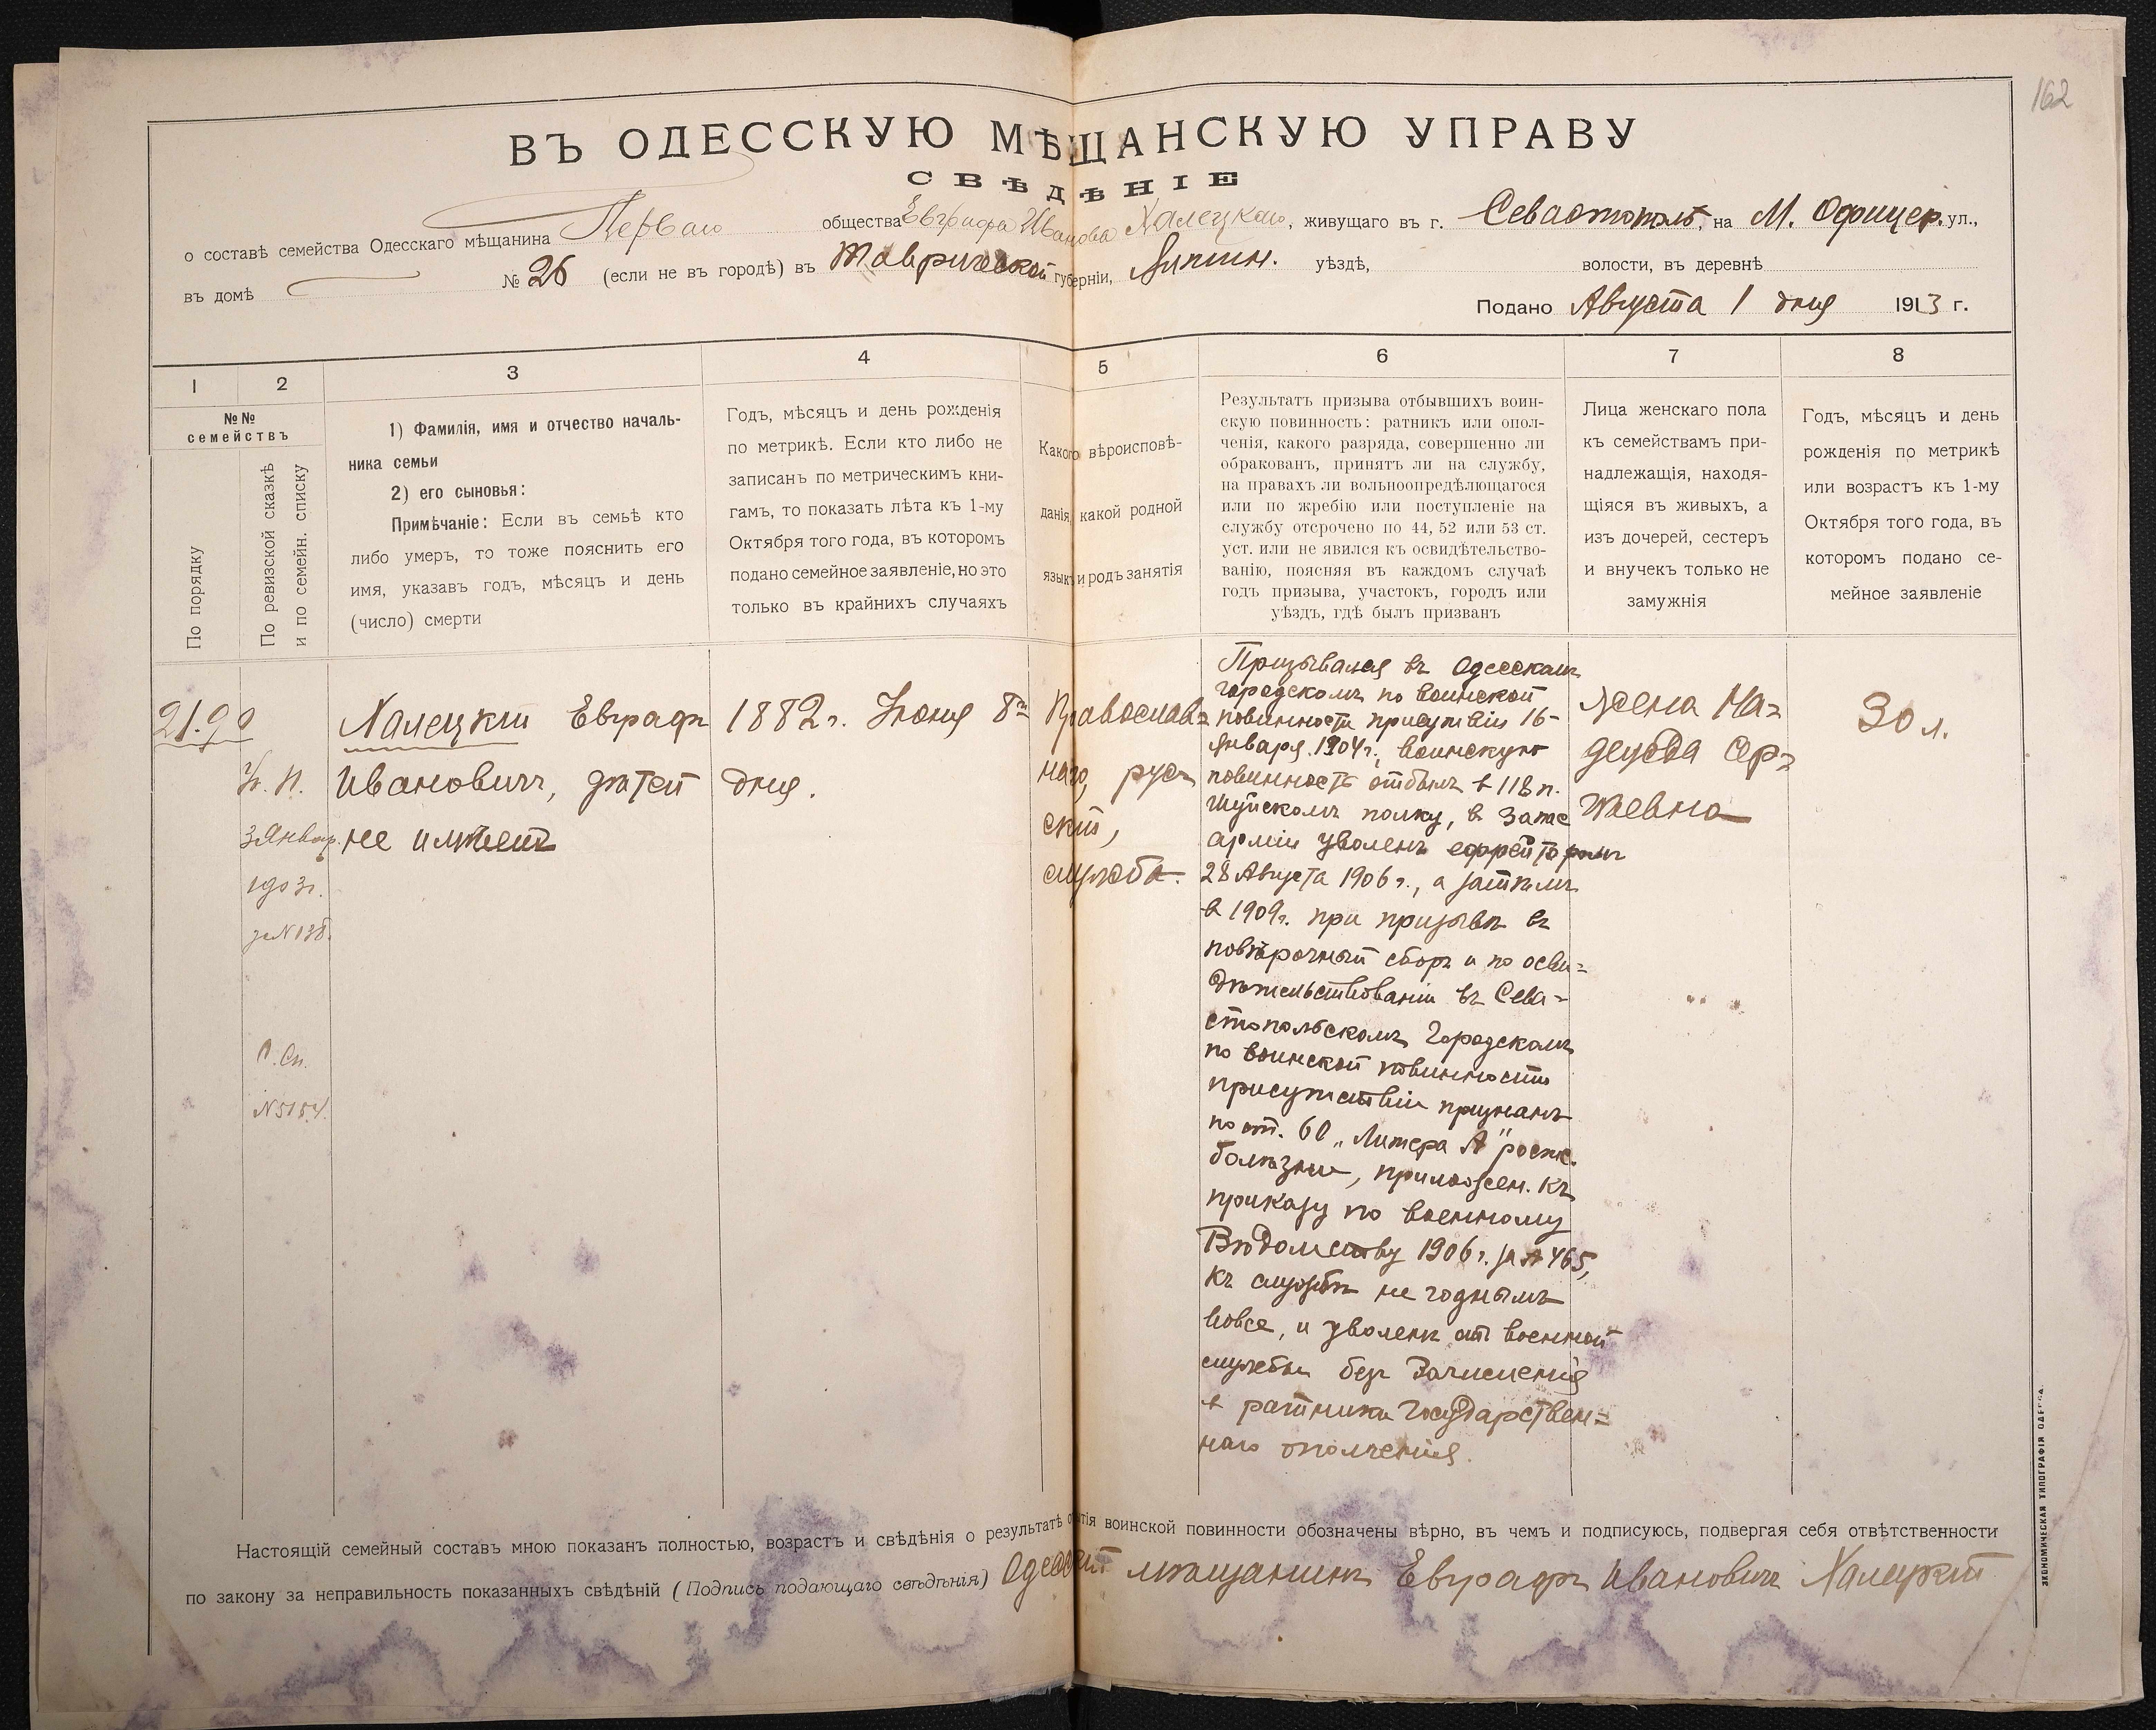 162
ВЪ ОДЕССКУЮ МѢЩАНСКУЮ УПРАВУ
СВѢДѢНІЕ
о составѣ семейства Одесскаго мѣщанина Перваго общества Евграфа Иванова Халецкаго, живущаго въ г. Севастополѣ, на М. Офицер. ул.,
въ домѣ № 26 (если не въ городѣ) въ Таврической губерніи, уѣздѣ, волости, въ деревнѣ
Подано Августа 1 дня 1913 г.
1
2
3
4
5
6
7
8
№№
семействъ
По порядку
По ревизской сказкѣ
и по семейн. списку
1) Фамилія, имя и отчество началь-
ника семьи
2) его сыновья:
Примѣчаніе: Если въ семьѣ кто
либо умеръ, то тоже пояснить его
имя, указавъ годъ, мѣсяцъ и день
(число) смерти
Годъ, мѣсяцъ и день рожденія
по метрикѣ. Если кто либо не
записанъ по метрическимъ кни-
гамъ, то показать лѣта къ 1-му
Октября того года, въ которомъ
подано семейное заявленіе, но это
только въ крайнихъ случаяхъ
Какого вѣроисповѣ-
данія, какой родной
языкъ и родъ занятія
Результатъ призыва отбывшихъ воин-
скую повинность: ратникъ или опол-
ченія, какого разряда, совершенно ли
обракованъ, принятъ ли на службу,
на правахъ ли вольноопредѣлющагося
или по жребію или поступленіе на
службу отсрочено по 44, 52 или 53 ст.
уст. или не явился къ освидѣтельство-
ванію, поясняя въ каждомъ случаѣ
годъ призыва, участокъ, городъ или
уѣздъ, гдѣ былъ призванъ
Лица женскаго пола
къ семействамъ при-
надлежащія, находя-
щіяся въ живыхъ, а
изъ дочерей, сестеръ
и внучекъ только не
замужнія
Годъ, мѣсяцъ и день
рожденія по метрикѣ
или возрастъ къ 1-му
Октября того года, въ
которомъ подано се-
мейное заявленіе
2190
3 Январ.
1903г.
№ 5154.
Халецкій Евграфъ
Ивановичъ, дѣтей
не имѣетъ
1882 г. Іюня 8го
дня.
Православ=
наго, рус=
скій,
служба.
Призывался въ Одесскомъ
городскомъ по воинской
повинности присутствіи 16-
января 1904 г., воинскую
повинность отбылъ в 118 п.
Шуйскомъ полку, в запас
арміи уволенъ ефрейторомъ
28 Августа 1906 г., а затѣмъ
в 1909 г. при призывѣ въ
повѣрочный сборъ и по осви=
дѣтельствованіи въ Сева=
стопольскомъ Городскомъ
по воинской повинности
присутствіи признанъ
по ст. 60 „Литера А" роспис.
болѣзни, приложен. къ
приказу по военному
Вѣдомству 1906 г. за № 465,
къ службѣ не годнымъ
вовсе, и уволенъ отъ военной
службы безъ зачисленія
в ратники Государствен=
наго ополченія.
Жена На=
дежда Сер=
гѣевна
30 л.
Настоящій семейный составъ мною показанъ полностью, возрастъ и свѣдѣнія о результатѣ отбытія воинской повинности обозначены вѣрно, въ чемъ и подписуюсь, подвергая себя отвѣтственности
по закону за неправильность показанныхъ свѣдѣній (Подпись подающаго свѣдѣнія) Одесскій мѣщанинъ Евграфъ Ивановичъ Халецкій
ЭКОНОМИЧЕСКАЯ ТИПОГРАФІЯ ОДЕССА.